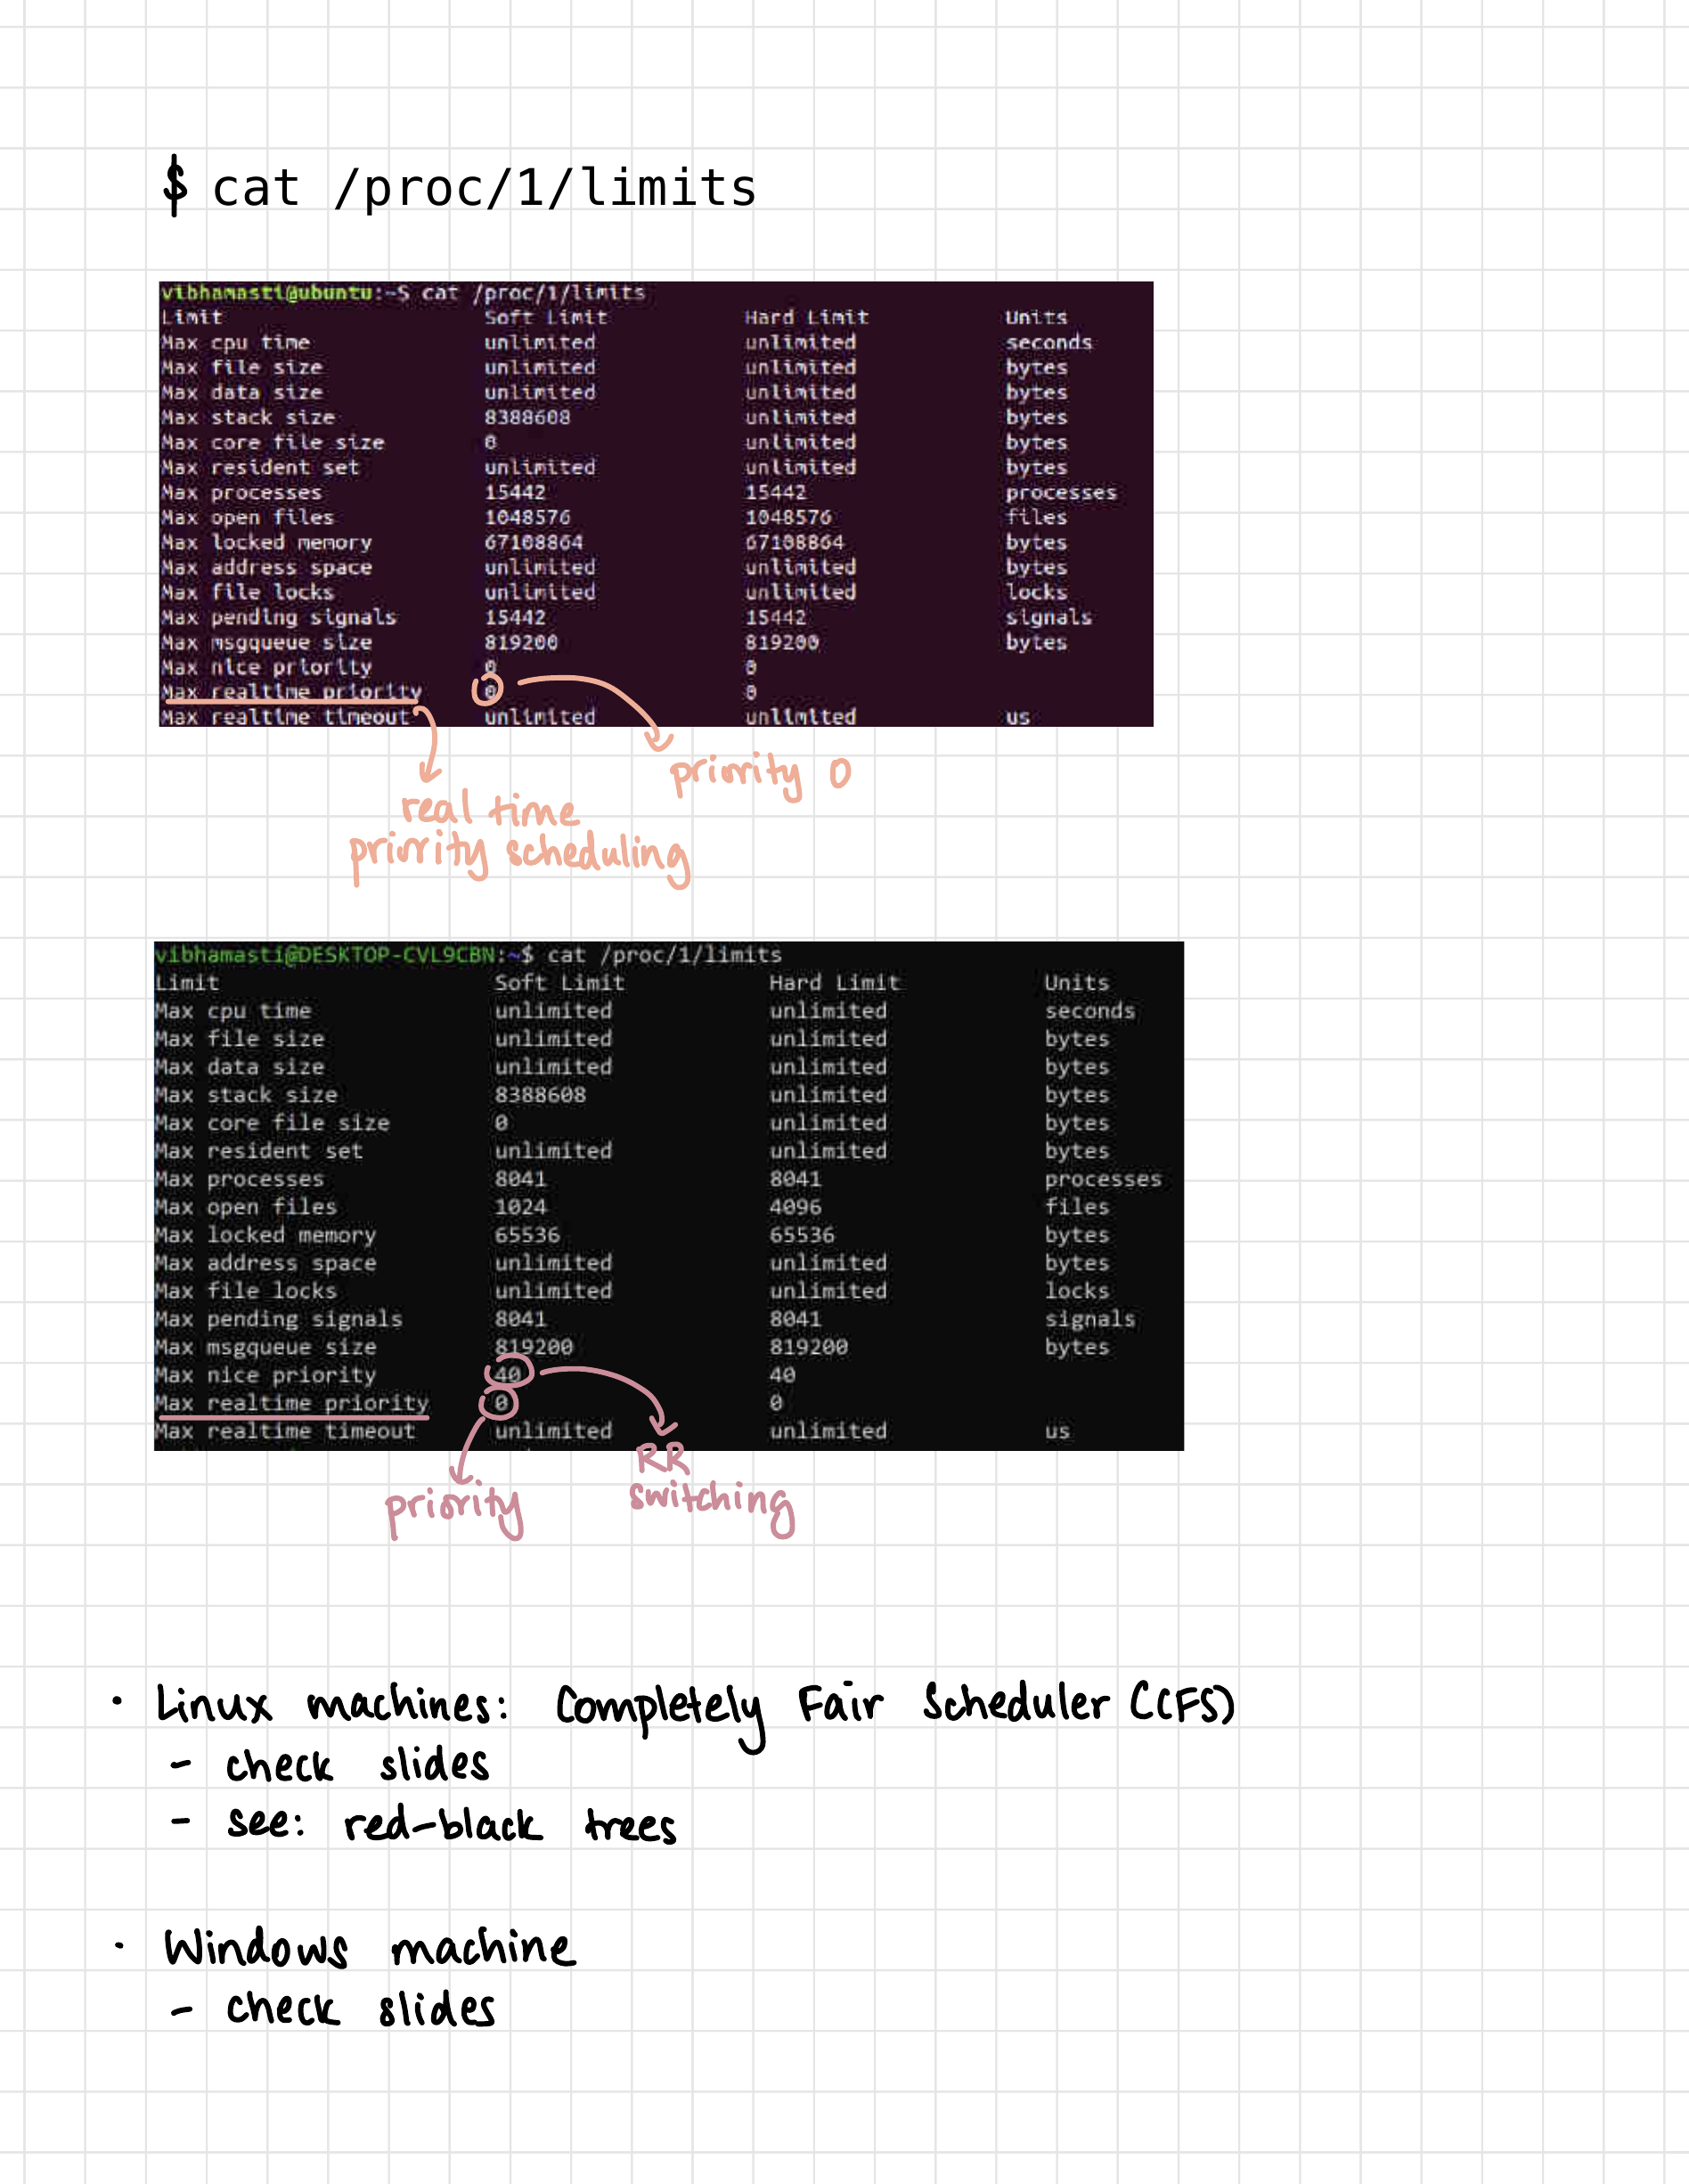 $ cat /proc/1/limits
vibhamasti@ubuntu:~$ cat /proc/1/limits
Limit Soft Limit Hard Limit Units
Max cpu time unlimited unlimited seconds
Max file size unlimited unlimited bytes
Max data size unlimited unlimited bytes
Max stack size 8388608 unlimited bytes
Max core file size 0 unlimited bytes
Max resident set unlimited unlimited bytes
Max processes 15442 15442 processes
Max open files 1048576 1048576 files
Max locked memory 67108864 67108864 bytes
Max address space unlimited unlimited bytes
Max file locks unlimited unlimited locks
Max pending signals 15442 15442 signals
Max msgqueue size 819200 819200 bytes
Max nice priority 0 0
Max realtime priority 0 0
Max realtime timeout unlimited unlimited us
priority 0
real time
priority scheduling
vibhamasti@DESKTOP-CVL9CBN:~$ cat /proc/1/limits
Limit Soft Limit Hard Limit Units
Max cpu time unlimited unlimited seconds
Max file size unlimited unlimited bytes
Max data size unlimited unlimited bytes
Max stack size 8388608 unlimited bytes
Max core file size 0 unlimited bytes
Max resident set unlimited unlimited bytes
Max processes 8041 8041 processes
Max open files 1024 4096 files
Max locked memory 65536 65536 bytes
Max address space unlimited unlimited bytes
Max file locks unlimited unlimited locks
Max pending signals 8041 8041 signals
Max msgqueue size 819200 819200 bytes
Max nice priority 40 40
Max realtime priority 0 0
Max realtime timeout unlimited unlimited us
RR
switching
priority
· Linux machines: Completely Fair Scheduler (CFS)
- check slides
- see: red-black trees
· Windows machine
- check slides